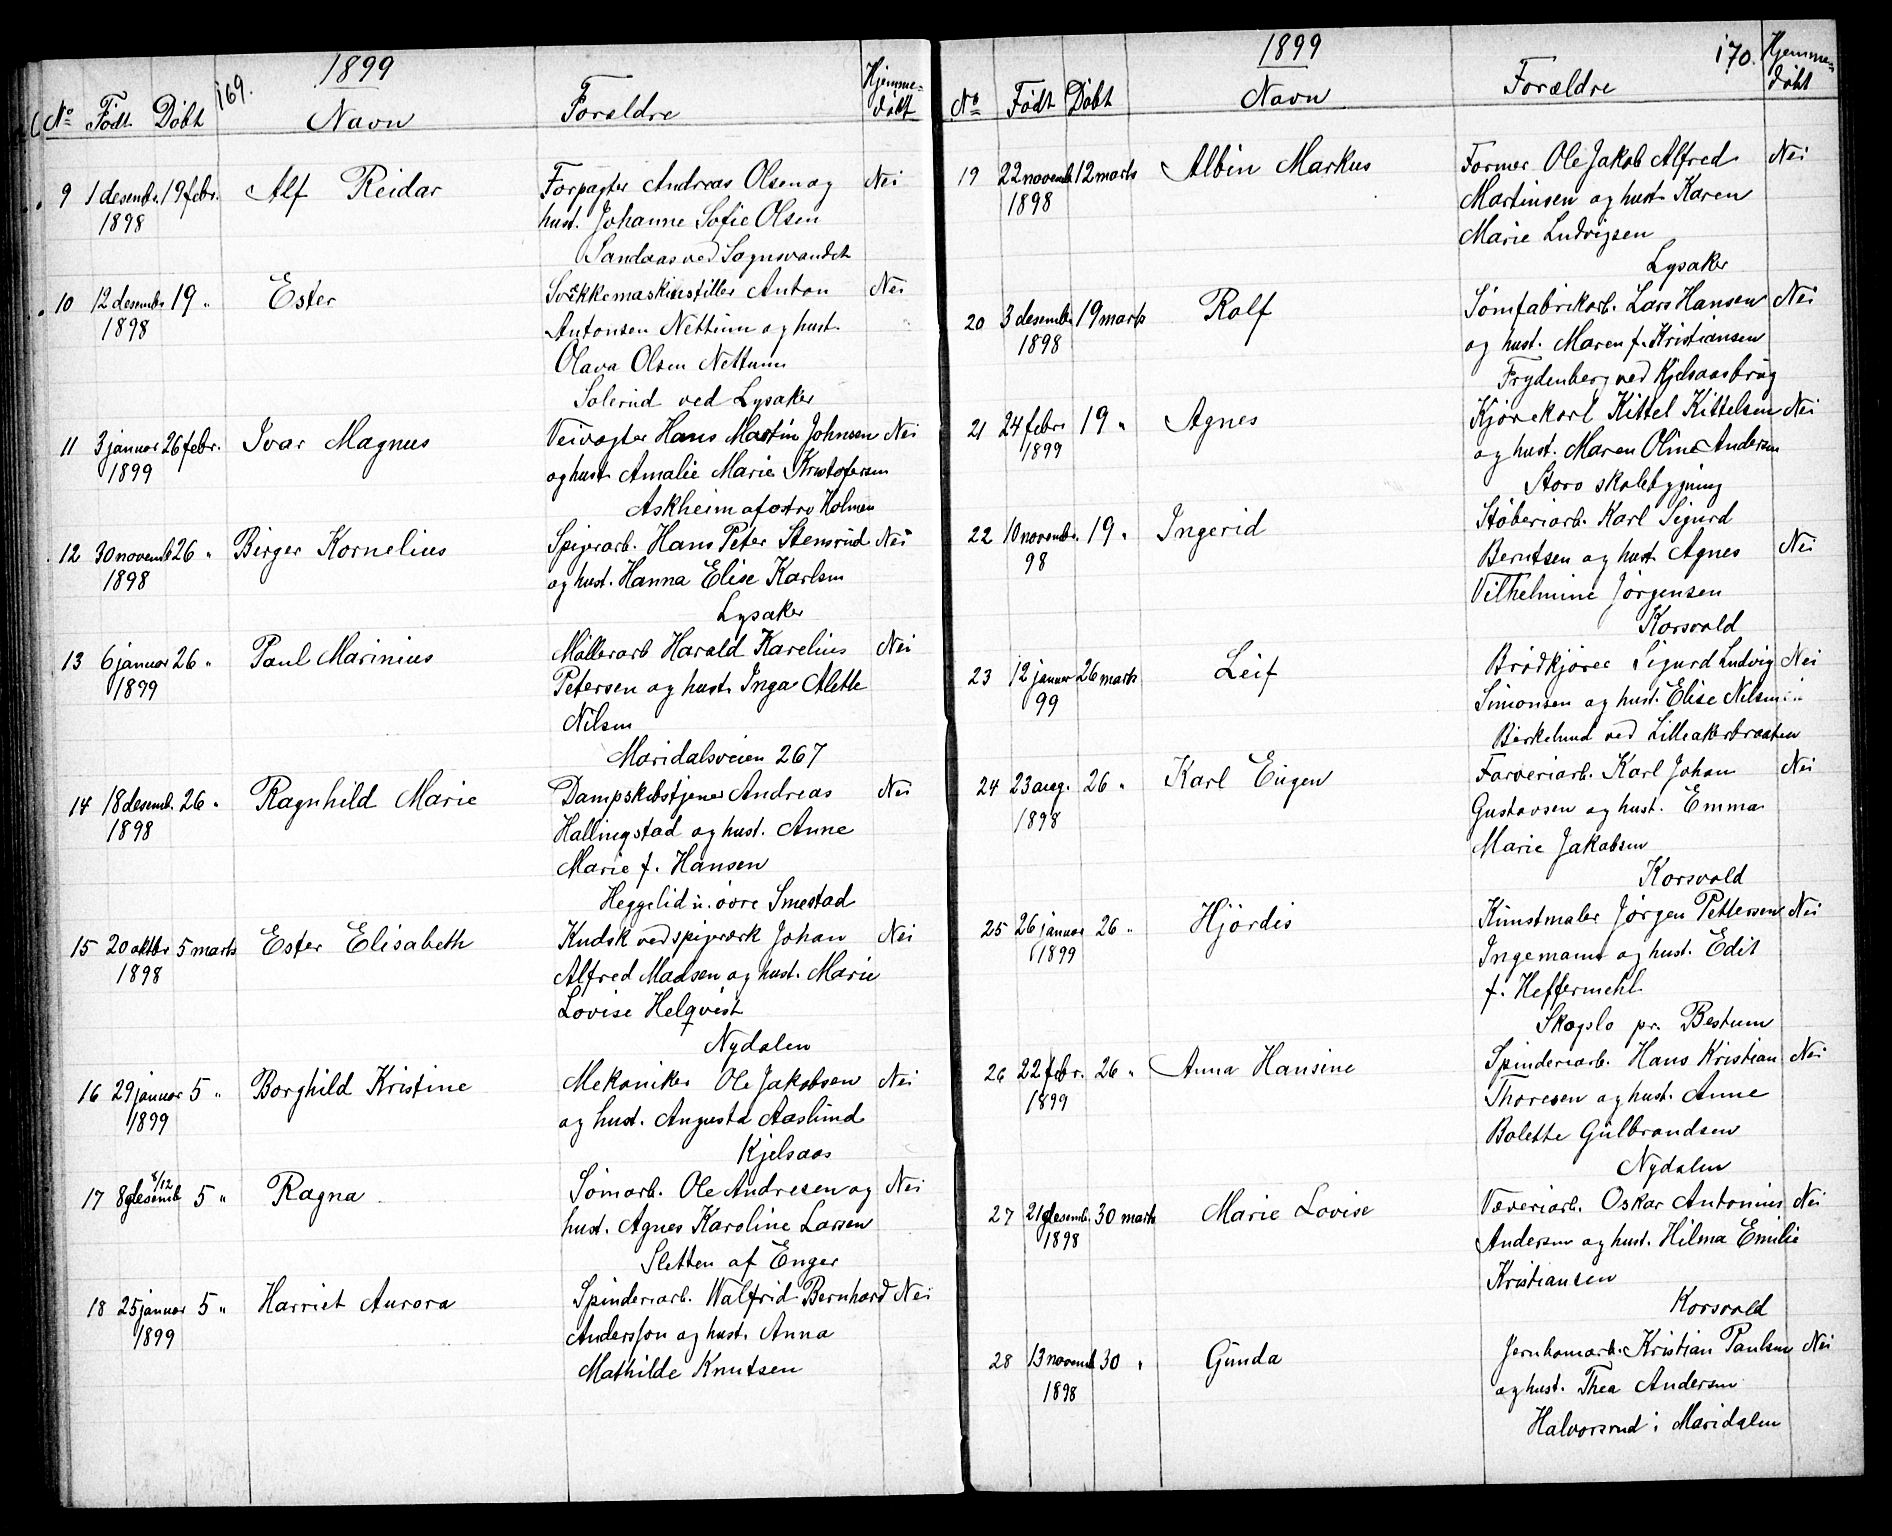 169.
1899
No Født Døbt Navn Forældre Hjemme-
døbt
9 1 desembr. 19 febr. Alf Reidar Forpagter Andreas Olsen og Nei
1898 hust. Johanne Sofie Olsen
Sandaas ved Sognsvandet
10 12 desembr 19 " Ester Anton Nei
1898 Antonsen Nettum og hust.
Olava Olsen Nettum
Solerud ved Lysaker
11 3 januar 26 febr. Ivar Magnus Veivogter Hans Martin Johnsen Nei
1899 og hust Amalie Marie Kristofersen
Askheim af østre Holmen
12 30 novemb 26 " Birger Kornelius Spigerarb. Hans Peter Stensrud Nei
1898 og hust. Hanna Elise Karlsen
Lysaker
13 6 januar 26 " Paul Marinius Møllerarb Harald Karelius Nei
1899 Petersen og hust. Inga Alette
Nilsen
Maridalsveien 267
14 18 desemb. 26 " Ragnhild Marie Dampskibstjener Andreas Nei
1898 Hallingstad og hust. Anne
Marie f. Hansen
Heggelid u. øvre Smestad
15 20 oktbr 5 marts Ester Elisabeth Kudsk ved spigerværk Johan Nei
1898 Alfred Madsen og hust. Marie
Lovise Helqvist
Nydalen
16 29 januar 5 " Borghild Kristine Mekaniker Ole Jakobsen Nei
1899 og hust. Augusta Aaslund
Kjelsaas
17 8 desemb 5 " Ragna Sømarb. Ole Andresen og Nei
hust. Agnes Karoline Larsen
Sletten af Enger
18 25 januar 5 " Harriet Aurora Spinderiarb. Walfrid Bernhard Nei
1899 Andersson og hust. Anna
Mathilde Knutsen
170.
1899
No Født Døbt Navn Forældre Hjemme-
døbt
19 22 novemb 12 marts Albin Markus Former Ole Jakob Alfred Nei
1898 Martinsen og hust Karen
Marie Ludvigsen
Lysaker
20 3 desemb. 19 marts Ralf Sømfabrikarb. Lars Hansen Nei
1898 og hust. Maren f. Kristiansen
Frydenberg ved Kjelsaasbrug
21 24 febr 19 " Agnes Kjørekarl Kittel Kittelsen Nei
1899 og hust. Maren Oline Andersen
Storo skolebygning
22 10 novembr. 19 " Ingerid Støberiarb. Karl Sigurd
98 Berntsen og hust Agnes Nei
Vilhelmine Jørgensen
Korsvold
23 12 januar 26 marts Leif Brødkjører Sigurd Ludvig Nei
99 Simonsen og hust. Elise Nilsen
Birkelund ved Lilleakerbraaten
24 23 aug. 26 " Karl Eugen Farveriarb. Karl Johan Nei
1898 Gustavsen og hust. Emma
Marie Jakobsen
Korsvold
25 26 januar 26 " Hjördis Kunstmaler Jørgen Pettersen Nei
1899 Ingemann og hust. Edit
f. Heffermehl
Skogslo pr. Bestum
26 22 febr. 26 " Anna Hansine Spinderiarb. Hans Kristian Nei
1899 Thoresen og hust. Anne
Bolette Gulbrandsen
Nydalen
27 21 desemb. 30 marts Marie Lovise Væveriarb. Oskar Antonius Nei
1898 Andersen og hust. Hilma Emilie
Kristiansen
Korsvold
28 13 novemb 30 " Gunda Kristian Paulsen Nei
1898 og hust. Thea Andersen
Halvorsrud i Maridalen